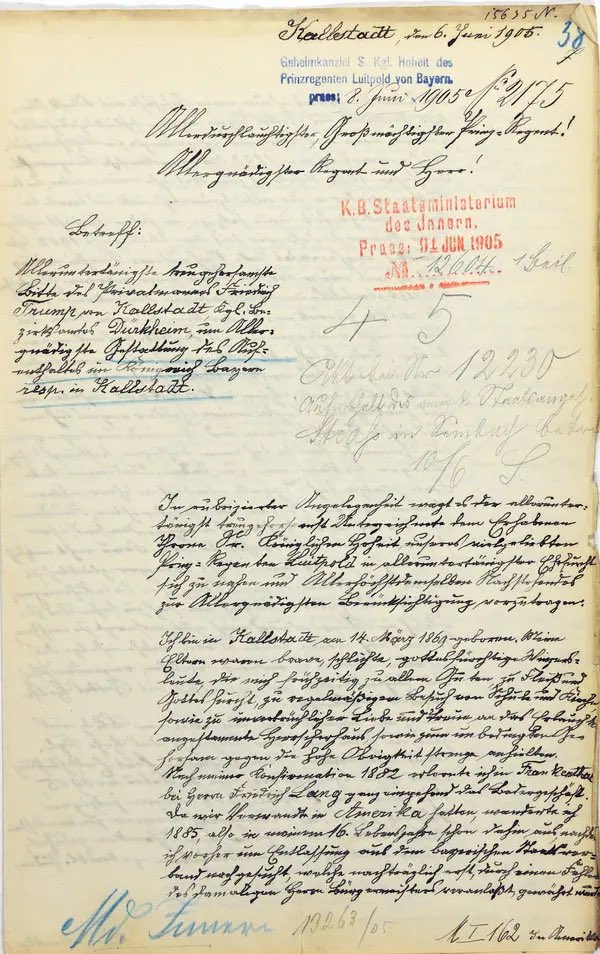 15635 N.
Kallstadt, den 6. Juni 1905.
38
7
Geheimkanzlei S. Kgl. Hoheit des
Prinzregenten Luitpold von Bayern.
praes: 8. Juni 1905 No 2175
Allerdurchlauchtigster, Großmächtigster Prinz-Regent!
Allergnädigster Regent und Herr!
K.B. Staatsministerium
des Innern.
Praes: 91 JUN. 1905
№ 12604. 1 Beil.
Betreff:
Alleruntertänigste treugehorsamste
Bitte des Privatmannes Friedrich
Trump von Kallstadt Kgl. Be-
zirksamtes Dürkheim, um Aller-
gnädigste Gestattung des Auf-
enthaltes im Königreich Bayern
resp. in Kallstadt.
4 5
Nr 12230
Aufenthalt des Staatsangeh.
in
10/6 S.
In rubrizierter Angelegenheit wagt es der allerunter-
tänigst treugehorsamst Unterzeichnete dem Erhabenen
Throne Sr. Königlichen Hoheit unseres vielgeliebten
Prinz-Regenten Luitpold in alleruntertänigster Ehrfurcht
sich zu nahen und Allerhöchstdemselben Nachstehendes
zur Allergnädigsten Berücksichtigung vorzutragen.
Ich bin in Kallstadt am 14. März 1869 geboren. Meine
Eltern waren brave, schlichte, gottesfürchtige Winzers-
leute, die mich frühzeitig zu allem Guten zu Fleiß und
Gottesfurcht, zu regelmäßigem Besuch von Schule und Kirche
sowie zu unverbrüchlicher Liebe und Treue an das Erlauchte
angestammte Herrscherhaus sowie zum unbedingten Ge-
horsam gegen die hohe Obrigkeit strenge anhielten.
Nach meiner Konfirmation 1882 erlernte ich in Frankenthal
bei Herrn Friedrich Lang ganz eingehend das Badergeschäft.
Da wir Verwandte in Amerika hatten, wanderte ich
1885, also in meinem 16. Lebensjahre schon dahin aus nachdem
ich vorher um Entlassung aus dem bayerischen Staatsver-
band nachgesucht, welche nachträglich erst, durch einen Fehler
des damaligen Herrn Bürgermeisters veranlaßt, gewährt wurde.
Md. Innern 13263/05
M I 162 In Amerika